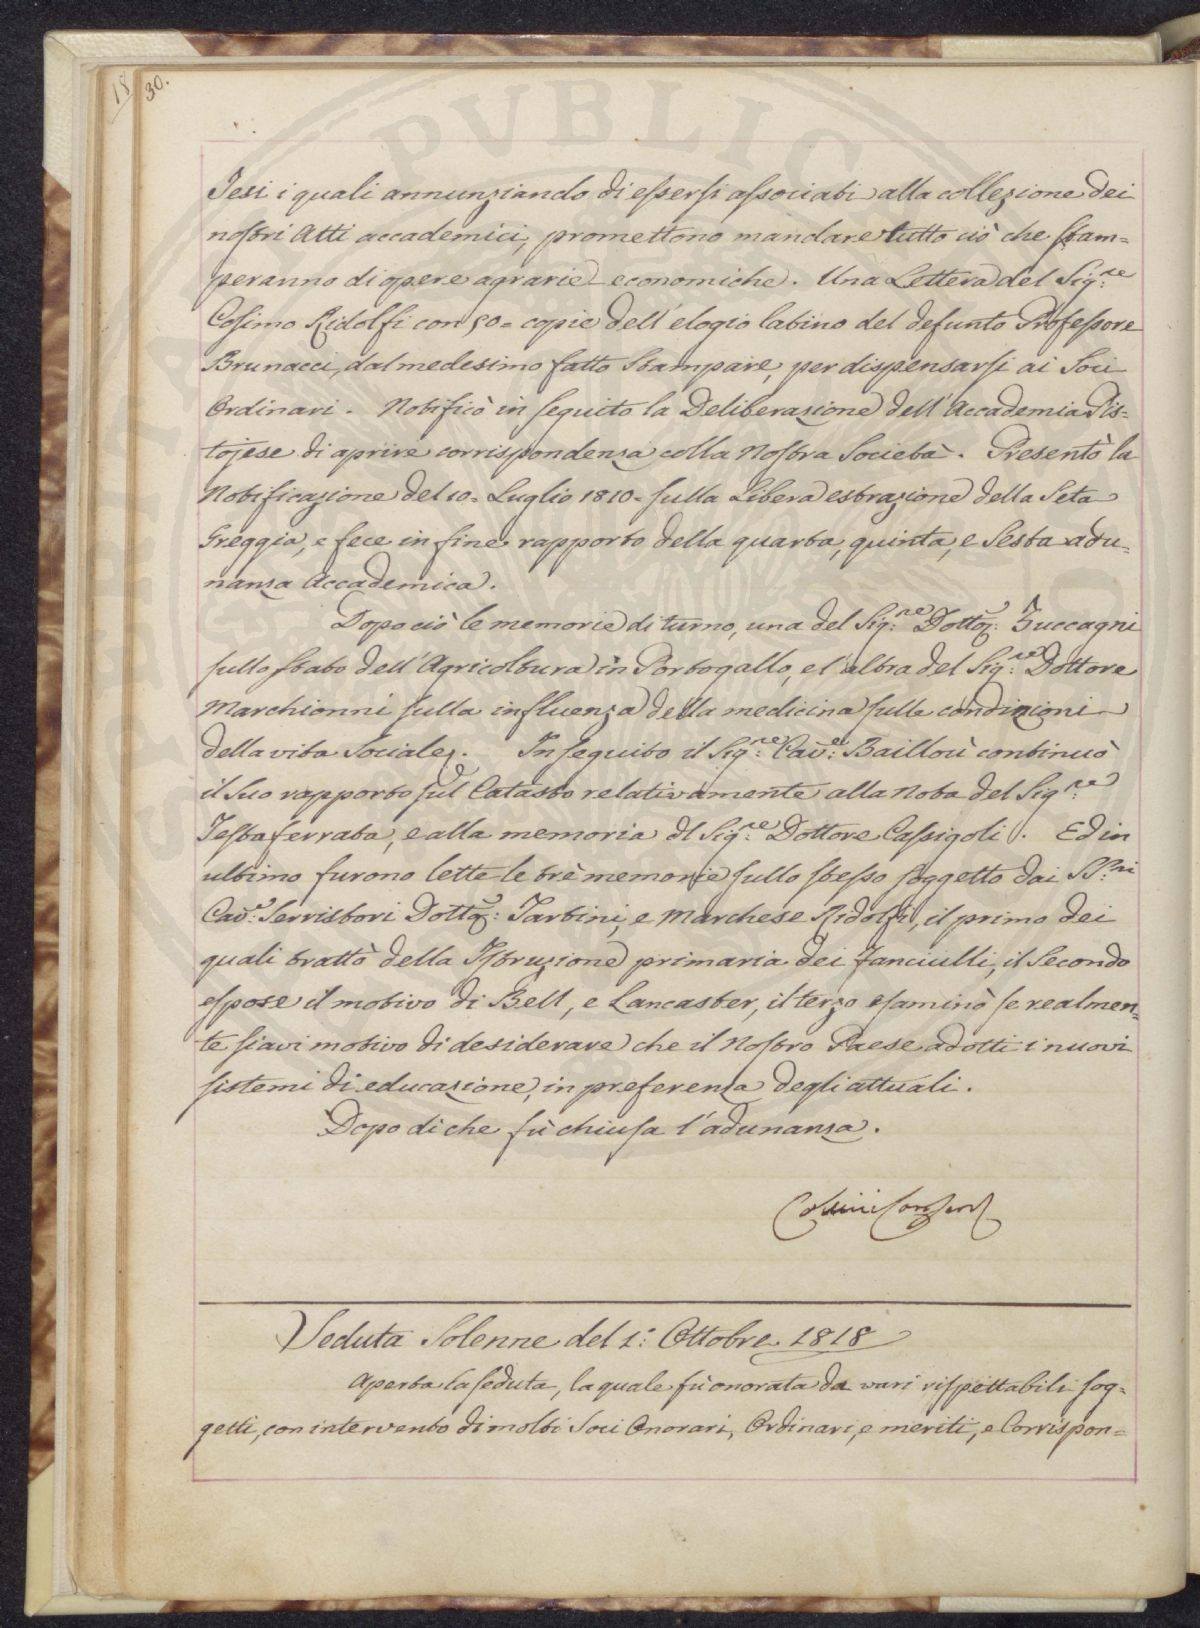 18
30.
Jesi i quali annunziando di essersi associati alla collezione dei
nostri Atti accademici, promettono mandare tutto ciò che stam=
peranno di opere agrarie economiche. Una Lettera del Sig:re
Cosimo Ridolfi con 50= copie dell'elogio latino del defunto Professore
Brunacci, dal medesimo fatto stampare, per dispensarsi ai Soci
Ordinari. Notificò in seguito la Deliberazione dell'Accademia Pis=
tojese di aprire corrispondenza colla Nostra Società. Presentò la
Notificazione del 10= Luglio 1810= sulla Libera estrazione della Seta
Greggia, e fece in fine rapporto della quarta, quinta, e Sesta adu=
nanza Accademica.
Dopo ciò le memorie di turno, una del Sig:re Dottor: Zuccagni
sullo stato dell'Agricoltura in Portogallo, e l'altra del Sig:re Dottore
Marchionni sulla influenza della medicina sulle condizioni
della vita Sociale. In seguito il Sig:re Cav:e Baillou continuò
il Suo rapporto sul Catasto relativamente alla Nota del Sig:re
Testaferrata, e alla memoria dl Sig:re Dottore Cassigoli. Ed in
ultimo furono lette le trè memorie sullo stesso soggetto dai SS:ri
Cav:e Serristori Dottor: Tartini, e Marchese Ridolfi, il primo dei
quali trattò della Istruzione primaria dei fanciulli, il Secondo
espose il motivo di Bell, e Lancaster, il terzo esaminò se realmen=
te siavi motivo di desiderare che il Nostro Paese adotti i nuovi
sistemi di educazione, in preferenza degli attuali.
Dopo di che fù chiusa l'adunanza.
Seduta Solenne del 1: Ottobre 1818
Aperta la seduta, la quale fù onorata da vari rispettabili sog=
getti, con intervento di molti Soci Onorari, Ordinari, emeriti, e Corrispon=
PUBLICA